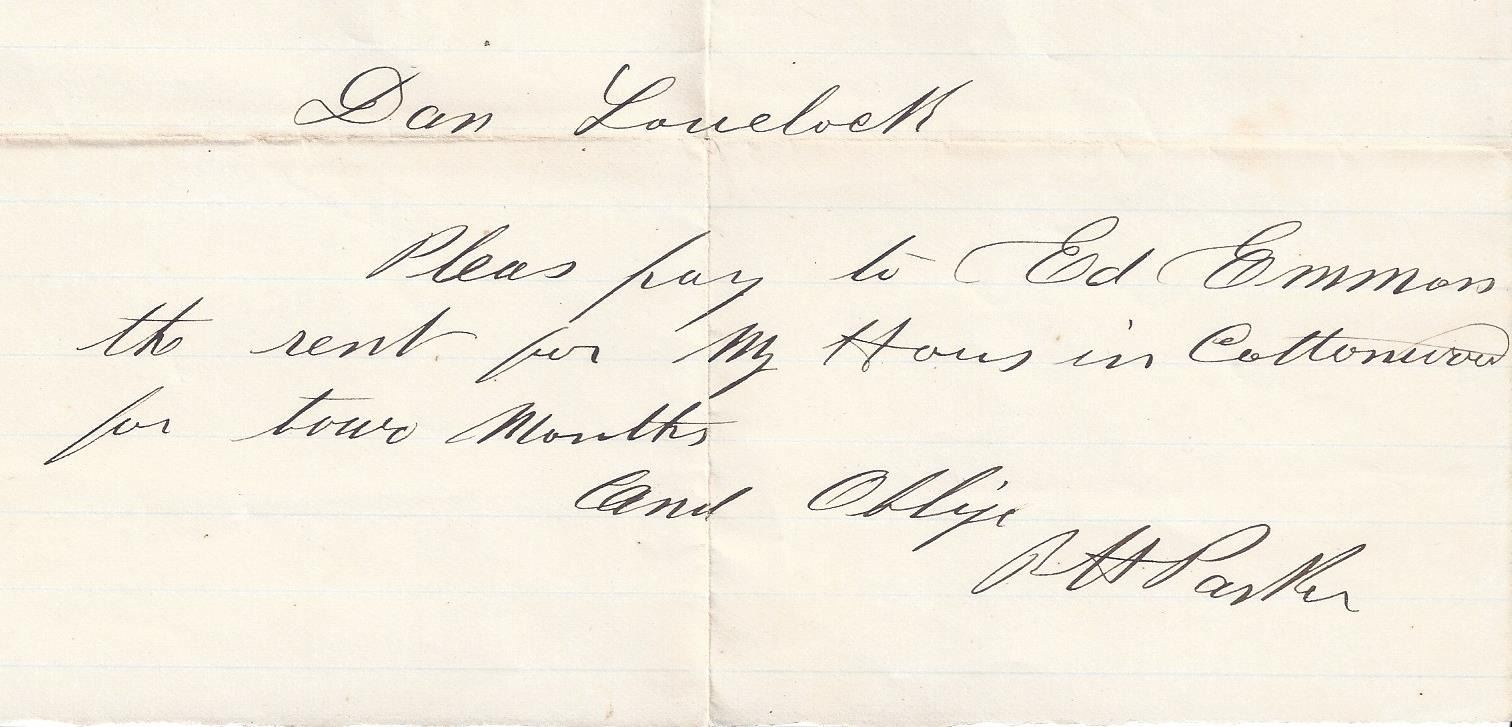 Dan Lovelock
Pleas pay to Ed Emmons
the rent for My Hous in Cottonwood
for towo Months
And Oblije
H Parker